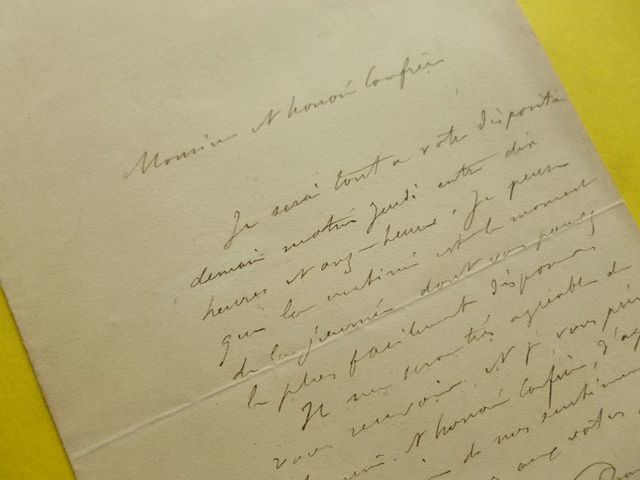 Monsieur et honoré Confrère
Je serai tout à votre disposition
demain matin Jeudi entre dix
heures et onze heures. Je pense
que la matinée est le moment
de la journée dont vous pouvez
le plus facilement disposer.
Il me sera très agréable de
vous recevoir. Et je vous prie
et honoré Confrère, d'ag
de mes sentiments